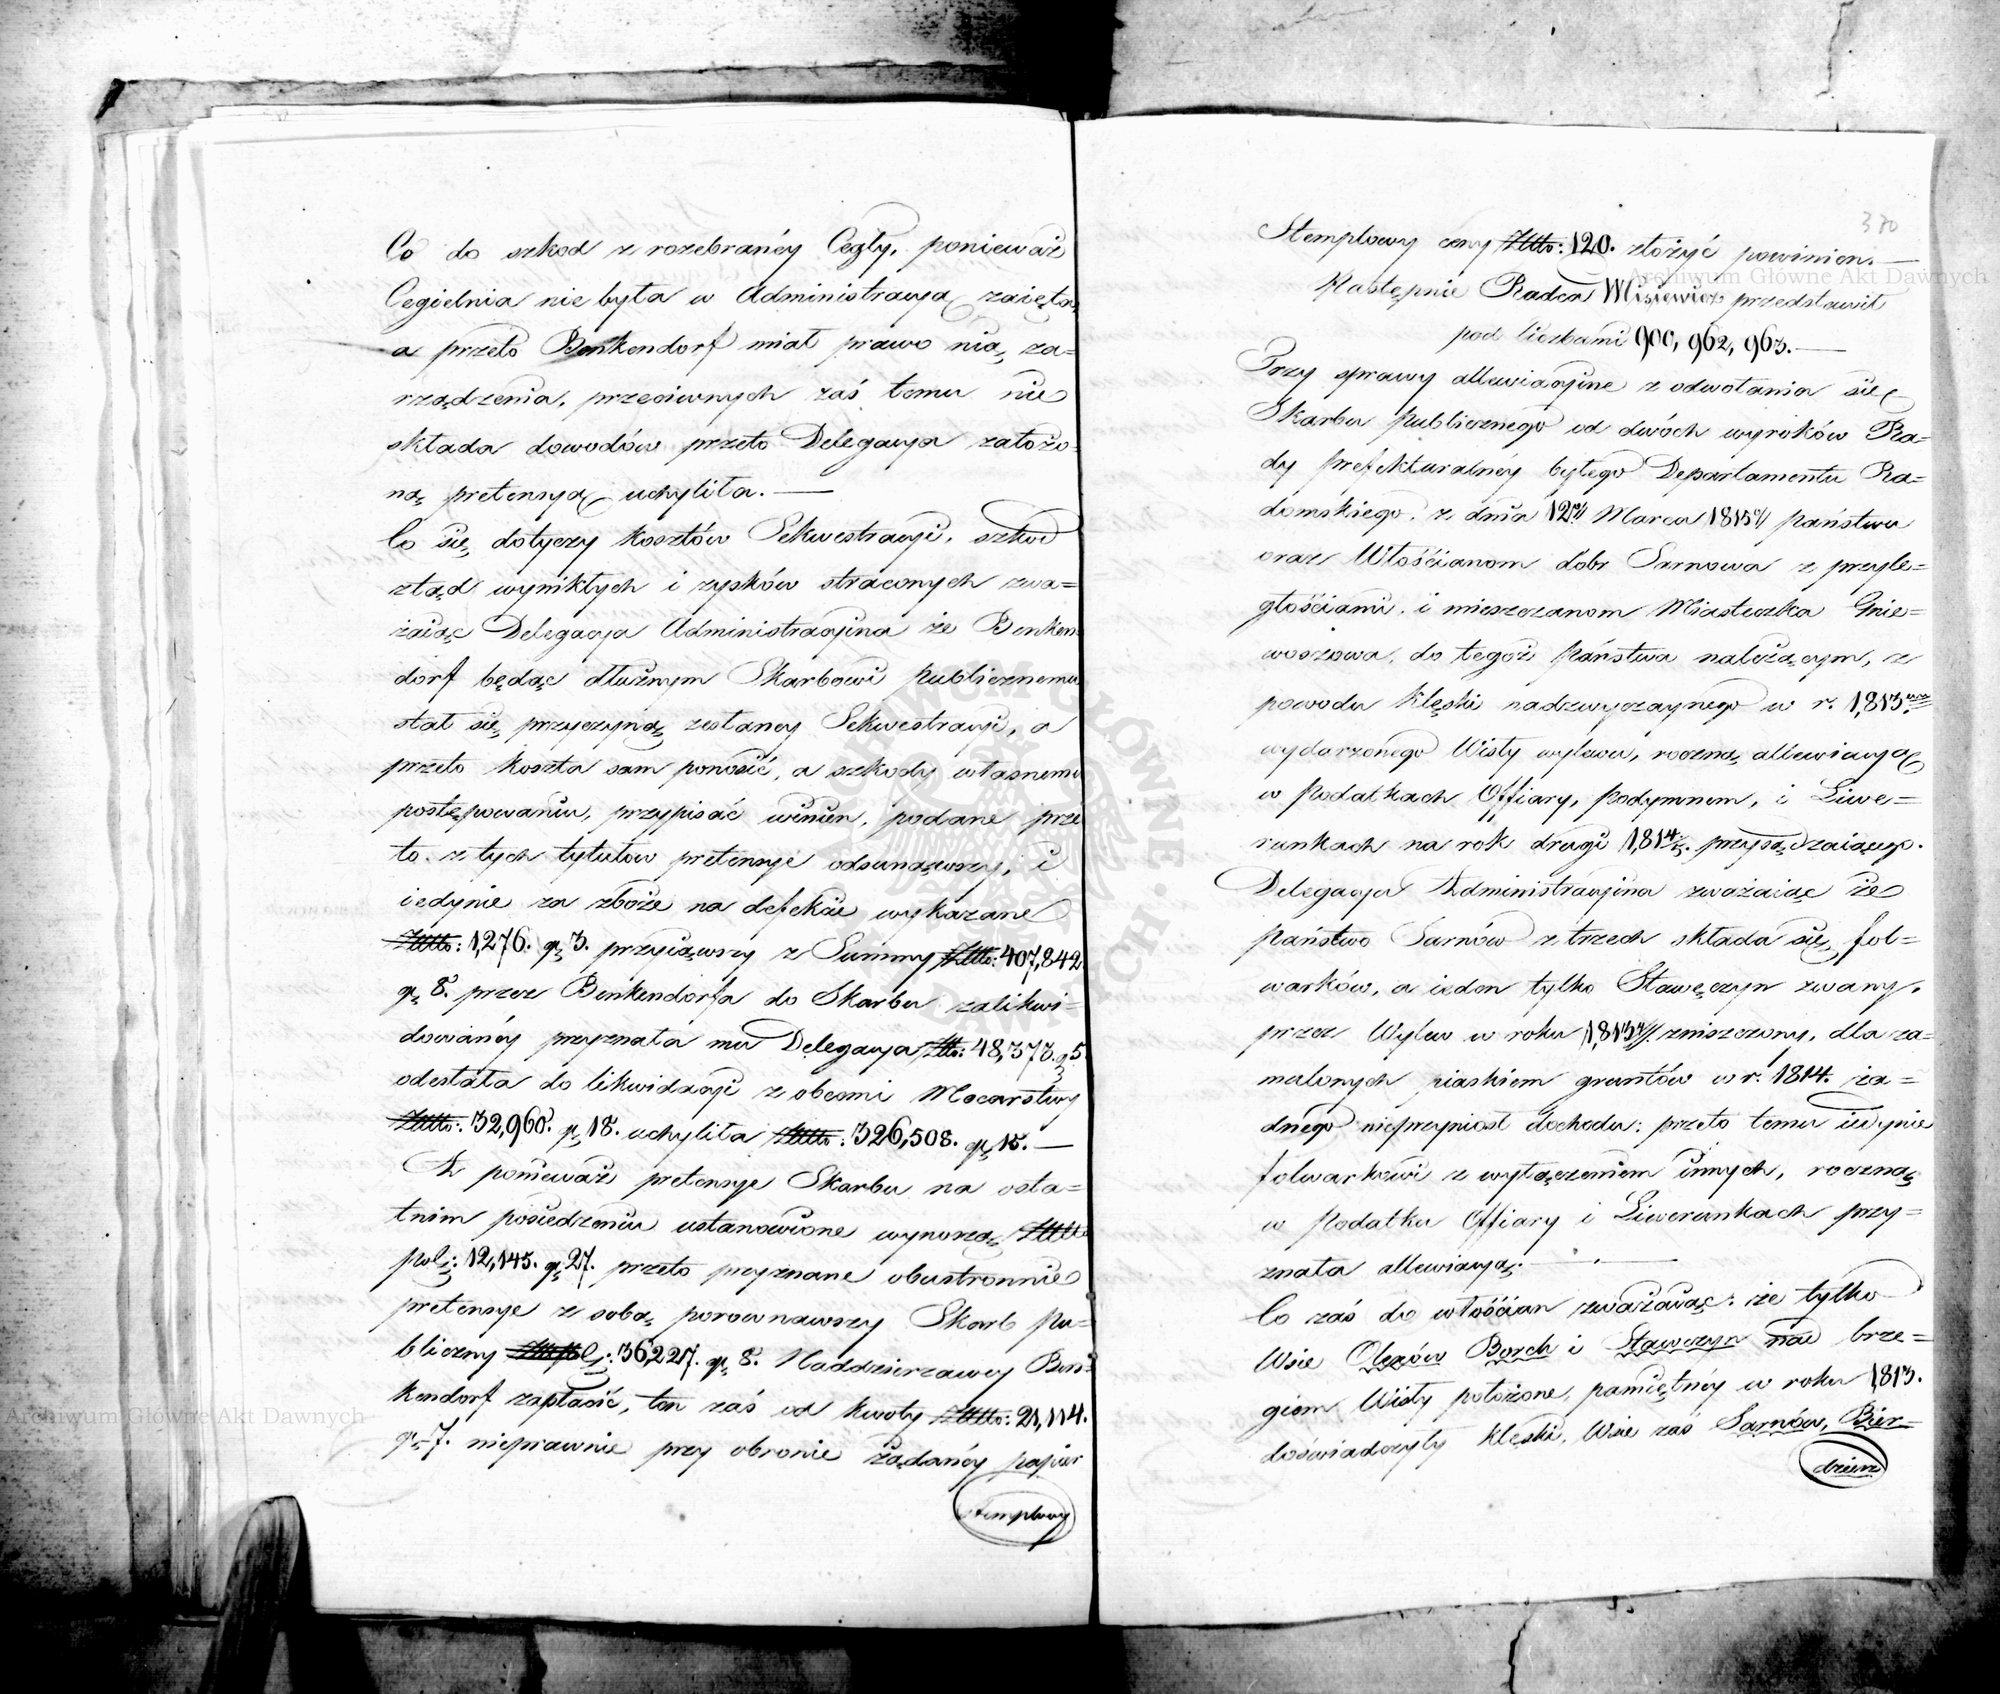 Co do szkod z rozebranéy Cegły, ponieważ
Cegielnia nie była w Administracyą zaięta,
a przeto Benkendorf miał prawo nią za=
rządzenia, przeciwnych zaś temu nie
składa dowodów przeto Delegacya założo=
ną pretensyą uchyliła. —
Co się dotyczy kosztów Sekwestracyi, szkod
ztąd wynikłych i zysków straconych zwa=
żaiąc Delegacya Administracyina że Benken=
dorf będąc dłużnym Skarbowi Publicznemu
stał się przyczyną zesłaney Sekwestracyi, a
przeto koszta sam ponosić, a szkody własnemu
postępowaniu, przypisać winien, podane prze
to z tych tytułów pretensye odsunąwszy, i
iedynie za zboże na defekcie wykazane
Złłto: 1,276. gr 3. przyiąwszy z Summy Złłto: 407,842.
gr 8. przez Benkendorfa do Skarbu zalikwi=
dowanéy przyznała mu Delegacya Złto: 48,373. gr 5.
odesłała do likwidacyi z obcemi Mocarstwy
Złłto: 32,960. gr 18. uchyliła Złłto: 326,508. gr 15. —
A ponieważ pretensye Skarbu na osta=
tnim posiedzeniu ustanowione wynoszą Złłto
pol: 12,145. gr 27. przeto przyznane obustronnie
pretensye z sobą porownawszy Skarb Pu=
bliczny Złłpol: 36227. gr 8. Naddzierzawcy Ben=
kendorf zapłacić, ten zaś od kwoty Złłto: 21,114.
gr 7. nieprawnie przy obronie żądanéy papier
stemplowy
380
Stemplowy ceny Złłto: 120. złożyć powinien. —
Następnie Radca Misiewicz przedstawił
pod liczbami 900, 962, 963. —
Przy sprawy allewiacyine z odwołania się
Skarbu Publicznego od dwóch wyroków Ra=
dy prefekturalnéy byłego Departamentu Ra=
domskiego, z dnia 12 Marca 1815 państwu
oraz Włościanom dóbr Sarnowa z przyle=
głościami, i mieszczanom Miasteczka Gnie=
woszowa, do tegoż Państwa należącym, z
powodu klęski nadzwyczaynego w r. 1,813
wydarzonego Wisły wylewu, roczną allewiacyą
w Podatkach Offiary, Podymnem, i Liwe=
runkach na rok drugi 1,814/5. przysądzaiącego.
Delegacya Administracyina zważaiąc że
Państwo Sarnów z trzech składa się fol=
warków, a ieden tylko Sławęczyn zwany,
przez Wylew w roku 1,813 zniszczony, dla za=
mulonych piaskiem gruntów w r. 1814. ża=
dnego nieprzyniosł dochodu; przeto temu iedynie
folwarkowi z wyłączeniem innych, roczną
w Podatku Offiary i Liwerunkach przy=
znała allewiacyą. —
Co zaś do włościan zważaiąc: że tylko
Wsie Olexów Borek i Sławczyn nad brze=
giem Wisły położone, pamiętnéy w roku 1,813.
doświadczyły klęski, Wsie zaś Sarnów, Bier=
dzierz
Archiwum Główne Akt Dawnych
Archiwum Główne Akt Dawnych